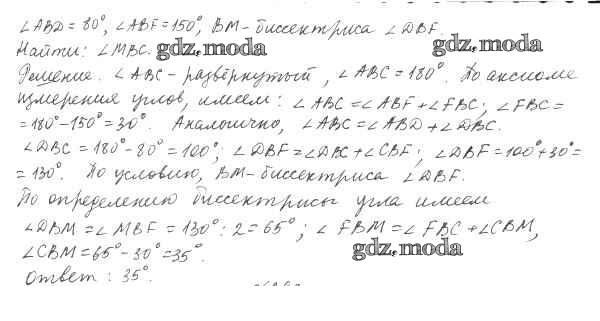 ∠ABD = 80°, ∠ABF = 150°, BM - биссектриса ∠DBF.
Найти: ∠MBC. gdz.moda gdz.moda
Решение. ∠ABC - развёрнутый, ∠ABC = 180°. По аксиоме
измерения углов, имеем: ∠ABC = ∠ABF + ∠FBC; ∠FBC =
= 180° - 150° = 30°. Аналогично, ∠ABC = ∠ABD + ∠DBC.
∠DBC = 180° - 80° = 100°; ∠DBF = ∠DBC + ∠CBF; ∠DBF = 100° + 30° =
= 130°. По условию, BM - биссектриса ∠DBF.
По определению биссектрисы угла имеем
∠DBM = ∠MBF = 130° : 2 = 65°; ∠FBM = ∠FBC + ∠CBM,
∠CBM = 65° - 30° = 35°. gdz.moda
Ответ: 35°.